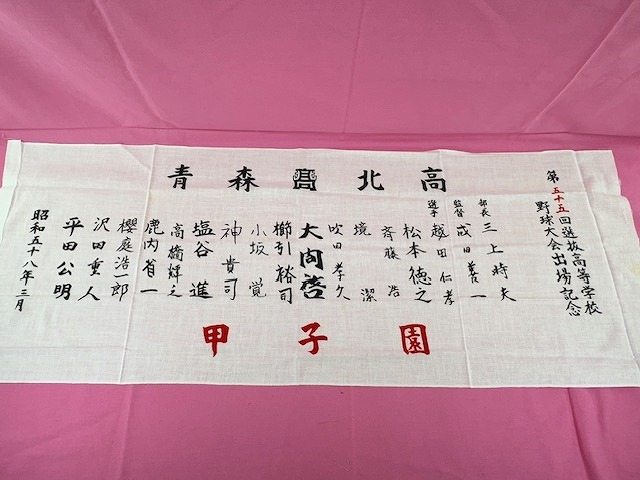 第五十五回選抜高等学校
野球大会出場記念
青森高北高
部長 三上時夫
監督 成田善一
選手 越田仁孝
松本徳之
斉藤浩
境潔
吹田孝久
大向啓
櫛引裕司
小坂覚
神貴司
塩谷進
高橋輝之
鹿内省一
櫻庭浩一郎
沢田重人
平田公明
昭和五十八年三月
甲子園